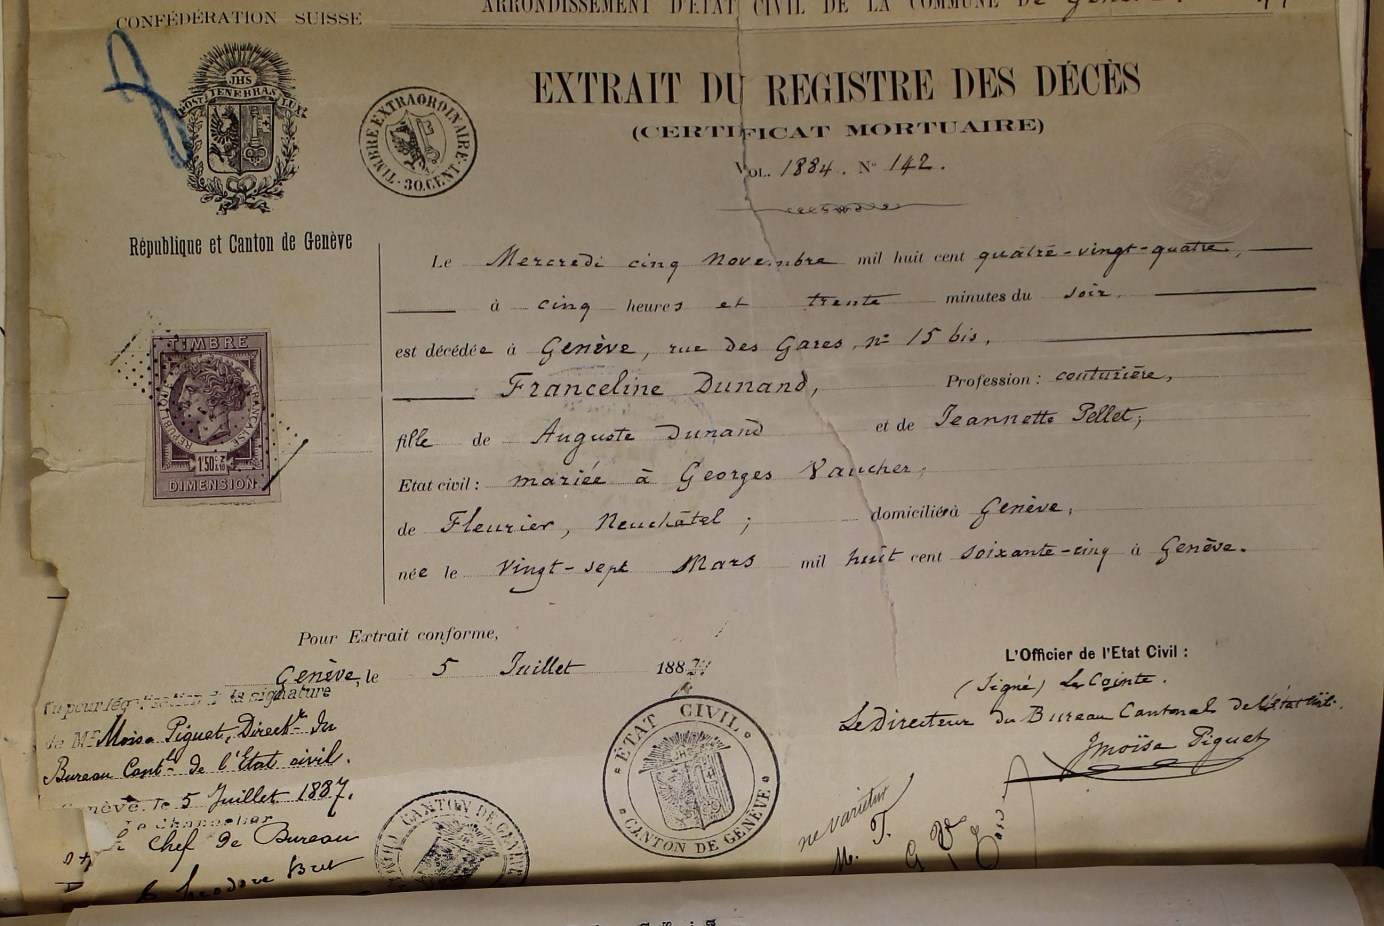 CONFÉDÉRATION SUISSE
ARRONDISSEMENT D'ÉTAT CIVIL DE LA COMMUNE De Genève.
JHS
POST TENEBRAS LUX
République et Canton de Genève
TIMBRE EXTRAORDINAIRE
30. CENT.
EXTRAIT DU REGISTRE DES DÉCÈS
(CERTIFICAT MORTUAIRE)
VOL. 1884. N° 142.
Le Mercredi cinq Novembre mil huit cent quatre-vingt-quatre,
à cinq heures et trente minutes du soir,
est décédée à Genève, rue des Gares, n° 15 bis,
Franceline Dunand, Profession: couturière,
fille de Auguste Dunand et de Jeannette Pellet,
Etat civil: mariée à Georges Vaucher,
de Fleurier, Neuchâtel; domiciliée à Genève,
née le vingt-sept Mars mil huit cent soixante-cinq à Genève.
TIMBRE
RÉPUBLIQUE FRANÇAISE
1f50c 2/10
DIMENSION
Pour Extrait conforme,
Genève, le 5 Juillet 1887
L'Officier de l'Etat Civil:
(Signé) Le Cointe.
Le Directeur du Bureau Cantonal de l'état civil.
J Moïse Piguet
Vu pour légalisation de la signature
de Mr Moïse Piguet, Directr du
Bureau Cantl de l'État civil.
Genève, le 5 Juillet 1887.
Le Chancelier
Chef de Bureau
Théodore Bret
ÉTAT CIVIL
CANTON DE GENÈVE
CANTON DE GENÈVE
ne varietur
M. T.
G V